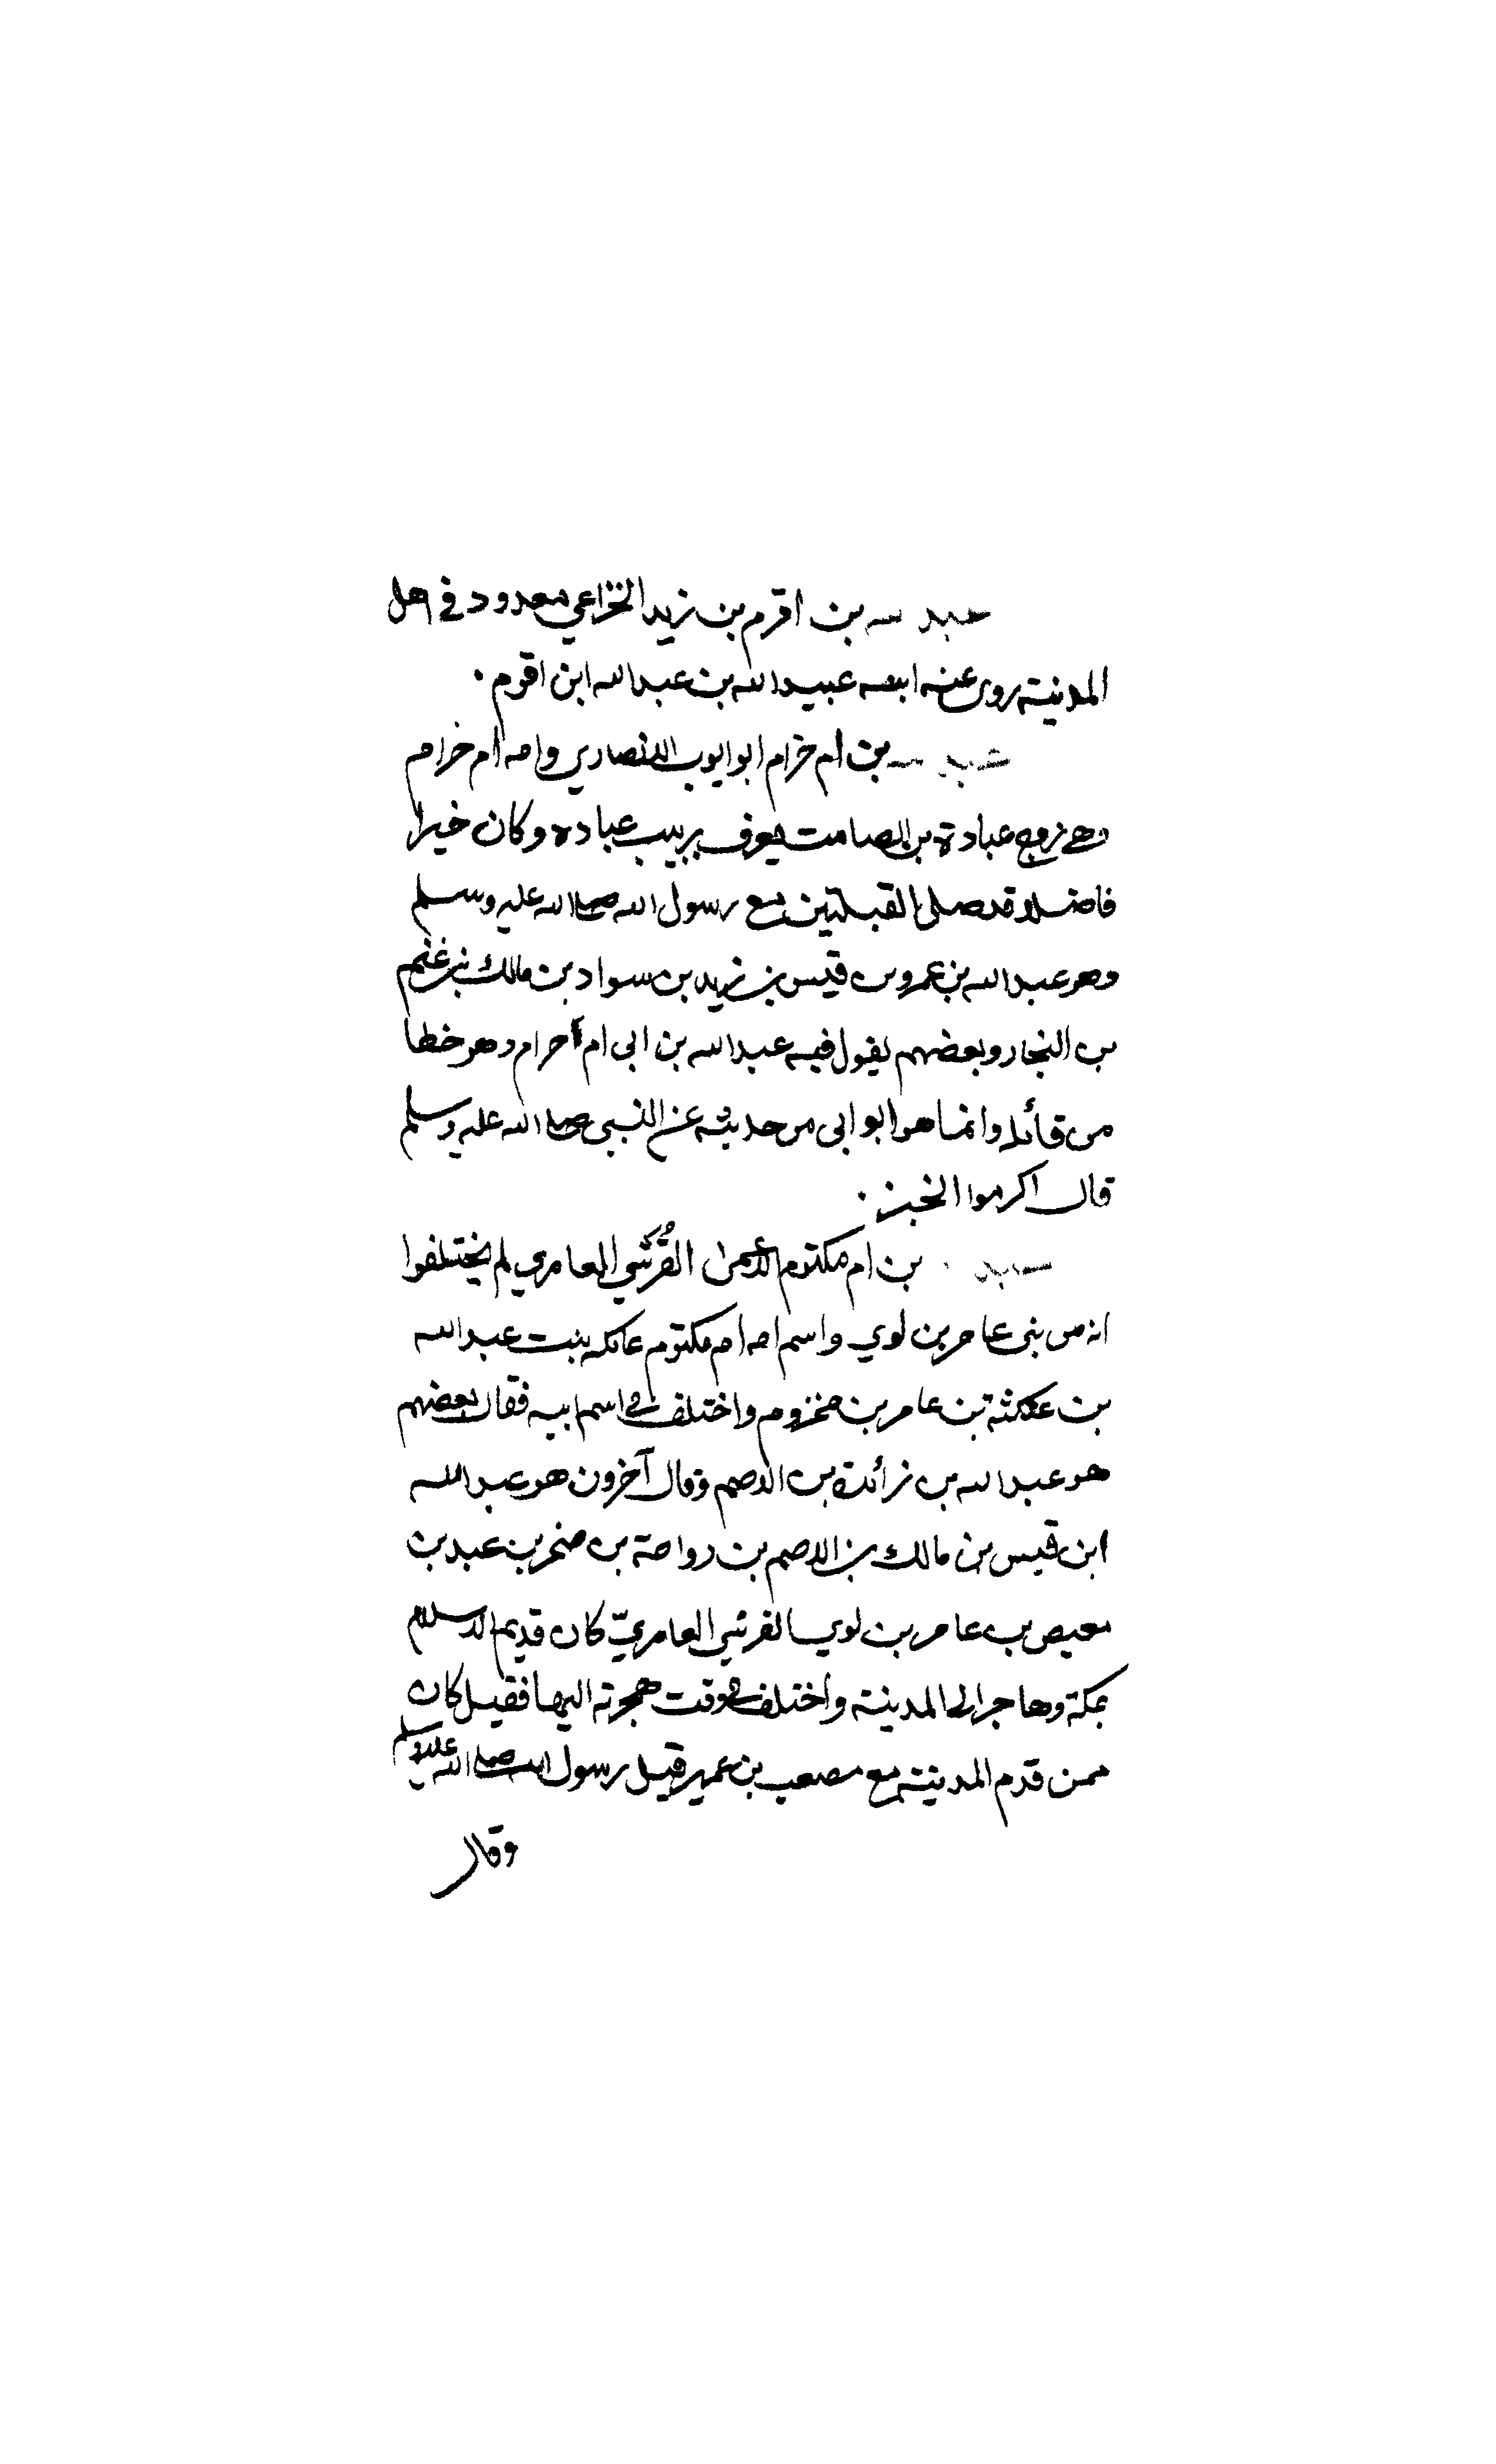 عبد الله بن اقرم بن زيد الخزاعي معدود في اهل
المدنية روى عنه ابنه عبيد الله بن عبد الله ابن اقوم .
عبد الله بن ام خرام ابو ايوب الانصاري وامه ام خرام
وهي زوج عبادة بن الصامت يعرف بربيب عباده وكان خيرا
فاضلا قد صلى القبلتين مع رسول الله صلى الله عليه وسلم
وهو عبد الله بن عمرو بن قيس بن زيد بن سواد بن مالك بن غنم
بن النجار وبعضهم يقول فيه عبد الله بن ابى ام حرام وهو خطا
من قائله وانما هو ابو ابى من حديثه عن النبي صلى الله عليه وسلم
قال اكرموا الخبز .
عبد بن ام مكتوم الاعمى القُرَشي العامري لم يختلفوا
انه من بنى عامر بن لوي واسم امه ام مكتوم عاتكه بنت عبد الله
بن عنكثة بن عامر بن مخزوم واختلف في اسم ابيه فقال بعضهم
هو عبد الله بن زائدة بن الاصم وقال آخرون هو عبد الله
ابن قيس بن مالك بن الاصم بن رواحة بن صخر بن عبد بن
معيص بن عامر بن لوي القرشي العامريّ كان قديم الاسلام
بمكة وهاجر الى المدينة واختلف في وقت هجرته اليها فقيل كان
ممن قدم المدينة مع مصعب بن عمير قبل رسول الله صلى الله عليه وسلم
وقال